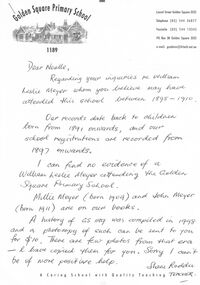 Golden Square Primary School
1189
Laurel Street Golden Square 3555
Dear Noelle,
Regarding your inquiries re William
Leslie Meyer whom you believe may have
attended this school between 1895-1910.
Our records date back to children
born from 1891 onwards, and our
school registrations are recorded from
1897 onwards.
I can find no evidence of a
William Leslie Meyer attending the Golden
Square Primary School.
Millie Meyer (born 1904) and John Meyer
(born 1911) are on our books.
A history of 55 pag was compiled in 1998
and a photocopy of each can be sent to you
for $10. There are few photos from that era
- I have copied them for you. Sorry I can't
be of more positive help.
TEACHER.
A Caring School with Quality Teaching